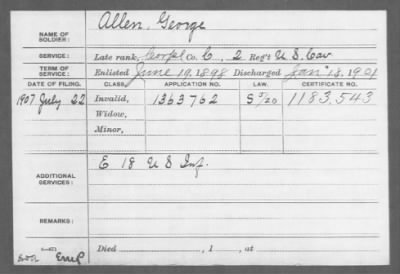 Allen, George
NAME OF SOLDIER:
SERVICE: Late rank, Corpl Co. C, 2 Reg't U S Cav
TERM OF SERVICE: Enlisted June 19, 1898 Discharged Jan' 18, 1901
DATE OF FILING. CLASS. APPLICATION NO. LAW. CERTIFICATE NO.
1907 July 22 Invalid, 1363762 S 5/20 1183.543
Widow,
Minor,
E 18 U S Inf.
ADDITIONAL SERVICES:
REMARKS:
Died , 1 , at